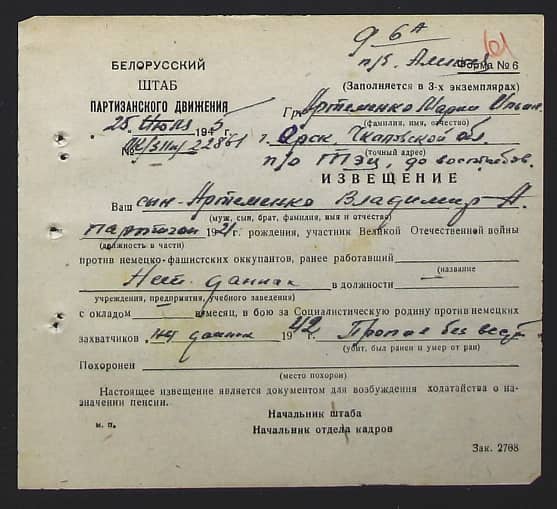 9 6А
61
п/я.
БЕЛОРУССКИЙ
ШТАБ
ПАРТИЗАНСКОГО ДВИЖЕНИЯ
"25" Июля 1945
№ 22861
Форма № 6
(Заполняется в 3-х экземплярах)
Гр. Артеменко Марии
(фамилия, имя, отчество)
г. Орск, Чкаловской обл.
(точный адрес)
п/о ТЭЦ, до востребов.
ИЗВЕЩЕНИЕ
Ваш сын-Артеменко Владимир А.
(муж, сын, брат, фамилия, имя и отчество)
партизан 1921г. рождения, участник Великой Отечественной войны
(должность в части)
против немецко-фашистских оккупантов, ранее работавший —
(название
Нет данных в должности
учреждения, предприятия, учебного заведения)
с окладом — в месяц, в бою за Социалистическую родину против немецких
захватчиков данных 1942г. Пропал без вест.
(убит, был ранен и умер от ран)
Похоронен
(место похорон)
Настоящее извещение является документом для возбуждения ходатайства о на-
значении пенсии.
Начальник штаба
м. п.
Начальник отдела кадров
Зак. 2708